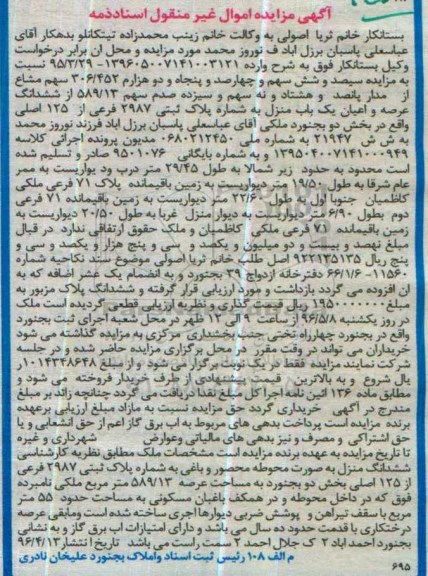 آگهی مزایده اموال غیر منقول اسناد ذمه
بستانکار خانم ثریا اصولی به وکالت خانم زینب محمدزاده تیتکانلو بدهکار آقای
عباسعلی پاسبان برزل آباد ف نوروز محمد مورد مزایده و محل آن برابر درخواست
وکیل بستانکار فوق به شرح وارده ۱۳۹۶۰۵۰۰۷۱۴۱۰۰۳۱۲۱- ۹۵/۳/۲۹ نسبت
به مزایده سیصد و شش سهم و چهارصد و پنجاه و دو هزارم ۳۰۶/۴۵۲ سهم مشاع
از مدار پانصد و هشتاد و نه سهم و سیزده صدم سهم ۵۸۹/۱۳ از ششدانگ
عرصه و اعیان یک باب منزل به شماره پلاک ثبتی ۲۹۸۷ فرعی از ۱۲۵ اصلی
واقع در بخش دو بجنورد ملکی آقای عباسعلی پاسبان برزل آباد فرزند نوروز محمد
به ش ش ۲۱۹۴۷ به شماره ملی ۰۶۸۰۲۱۲۴۵۰ مدیون پرونده اجرائی کلاسه
۱۳۹۵۰۴۰۰۷۱۴۱۰۰۰۹۴۹ و به شماره بایگانی ۹۵۰۱۰۷۶ صادر و تسلیم شده
است محدود به حدود زیر شمالا به طول ۲۹/۴۵ متر درب ود یواریست به ممر
عام شرقا به طول ۱۷/۵۰ متر دیواریست به زمین باقیمانده پلاک ۷۱ فرعی ملکی
کاظمیان جنوبا اول به طول ۲۲/۶ متر دیواریست به زمین باقیمانده ۷۱ فرعی
دوم بطول ۶/۹۰ متر دیواریست به دیوار منزل غربا به طول ۲۰/۵۰ دیواریست به
زمین باقیمانده ۷۱ فرعی ملکی کاظمیان و ملک حقوق ارتفاقی ندارد در قبال
مبلغ نهصد و بیست و دو میلیون و یکصد و سی و پنج هزار و یکصد و سی و
پنج ریال ۹۲۲۱۳۵۱۳۵ اصل طلب خانم ثریا اصولی موضوع سند نکاحیه شماره
۱۱۵۶۰- ۶۶/۱/۶ دفترخانه ازدواج ۳۹ بجنورد و به انضمام یک عشر اضافه که به
ان افزوده می گردد بازداشت و مورد ارزیابی قرار گرفته و ششدانگ پلاک مزبور به
مبلغ ۱۹۵۰۰۰۰۰۰۰ ریال قیمت گذاری و نظریه ارزیابی قطعی گردیده است ملک
در روز یکشنبه ۹۶/۵/۸ از ساعت ۹ الی ۱۲ ظهر در محل شعبه اجرای ثبت بجنورد
واقع در بجنورد چهارراه تختی جنب بخشداری مرکزی به مزایده گذاشته می شود
خریداران می تواند در وقت مقرر در محل برگزاری مزایده حاضر شده و در جلسه
شرکت نمایند مزایده فقط در یک نوبت برگزار می شود و از مبلغ ۱۰۱۴۳۴۸۶۴۸ر
یال شروع و به بالاترین قیمت پیشنهادی از طرف خریدار فروخته می شود و
مطابق ماده ۱۳۶ ائین نامه اجرا کل مبلغ نقدا دریافت می گردد چنانچه زائد بر مبلغ
مندرج در آگهی خریداری گردد حق مزایده نسبت به مازاد مبلغ ارزیابی برعهده
برنده مزایده است پرداخت بدهی های مربوط به اب برق گاز اعم از حق انشعابی و یا
حق اشتراکی و مصرف و نیز بدهی های مالیاتی وعوارض شهرداری و غیره
تا تاریخ مزایده به عهده برنده مزایده است مشخصات ملک مطابق نظریه کارشناسی
ششدانگ منزل به صورت محوطه محصور و باغی به شماره پلاک ثبتی ۲۹۸۷ فرعی
از ۱۲۵ اصلی بخش دو بجنورد به مساحت عرصه ۵۸۹/۱۳ متر مربع ملکی نامبرده
فوق که در داخل محوطه و در همکف باغبان مسکونی به مساحت حدود ۵۵ متر
مربع با سقف تیراهن و پوشش ضربی دیوارها آجری ساخته شده است ومابقی عرصه
درختکاری با قدمت حدود ده سال می باشد و دارای امتیازات اب برق گاز و به نشانی
بجنورد احمد اباد ۲ ک جلال احمد ۲ سمت راست می باشد تاریخ انتشار ۹۶/۴/۱۳
م الف ۱۰۸ رئیس ثبت اسناد و املاک بجنورد علیخان نادری
۶۹۵